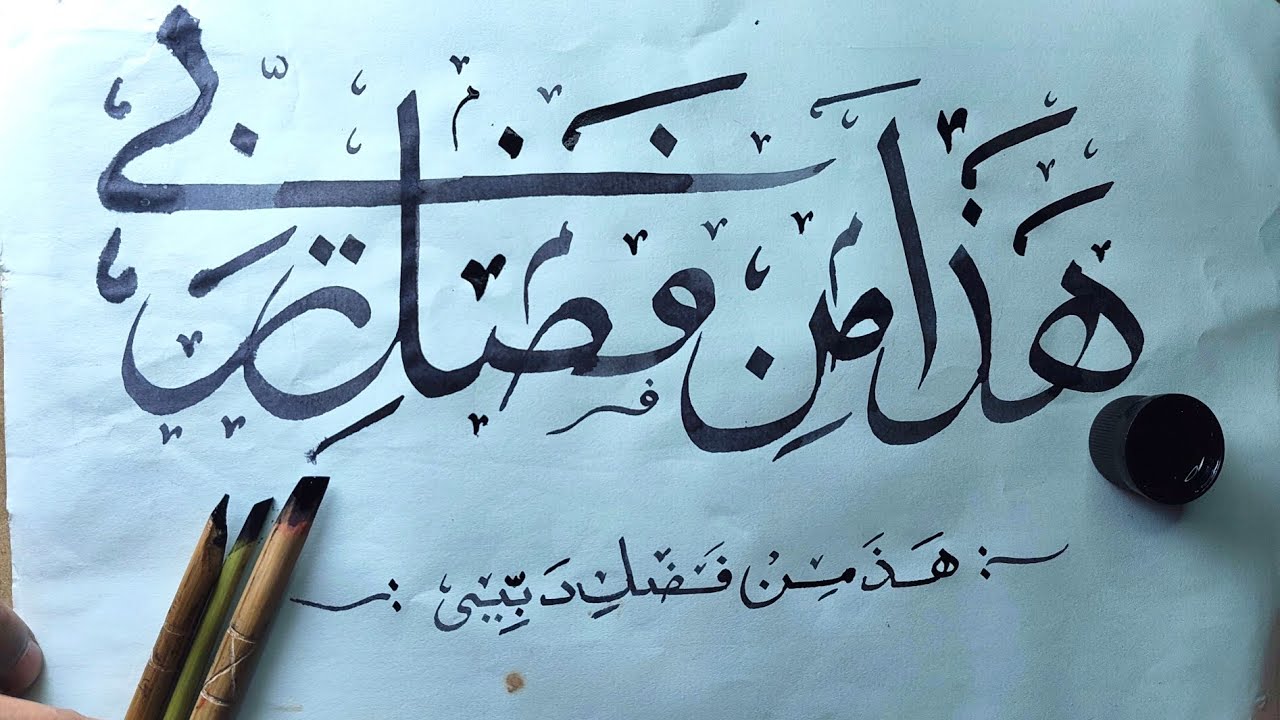 هَذَا مِن فَضْلِ رَبِّي
هَذَ مِنْ فَضْلِ رَبِّي